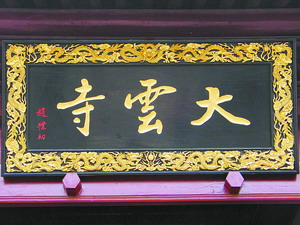 大雲寺
趙樸初